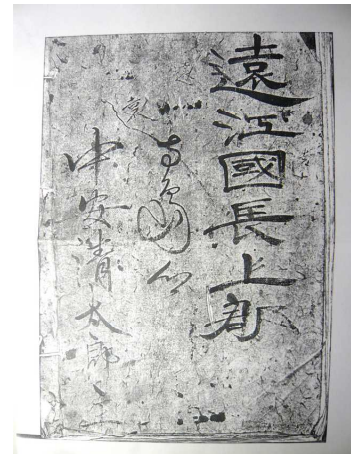 遠江國長上郡
寺島
中安清太郎